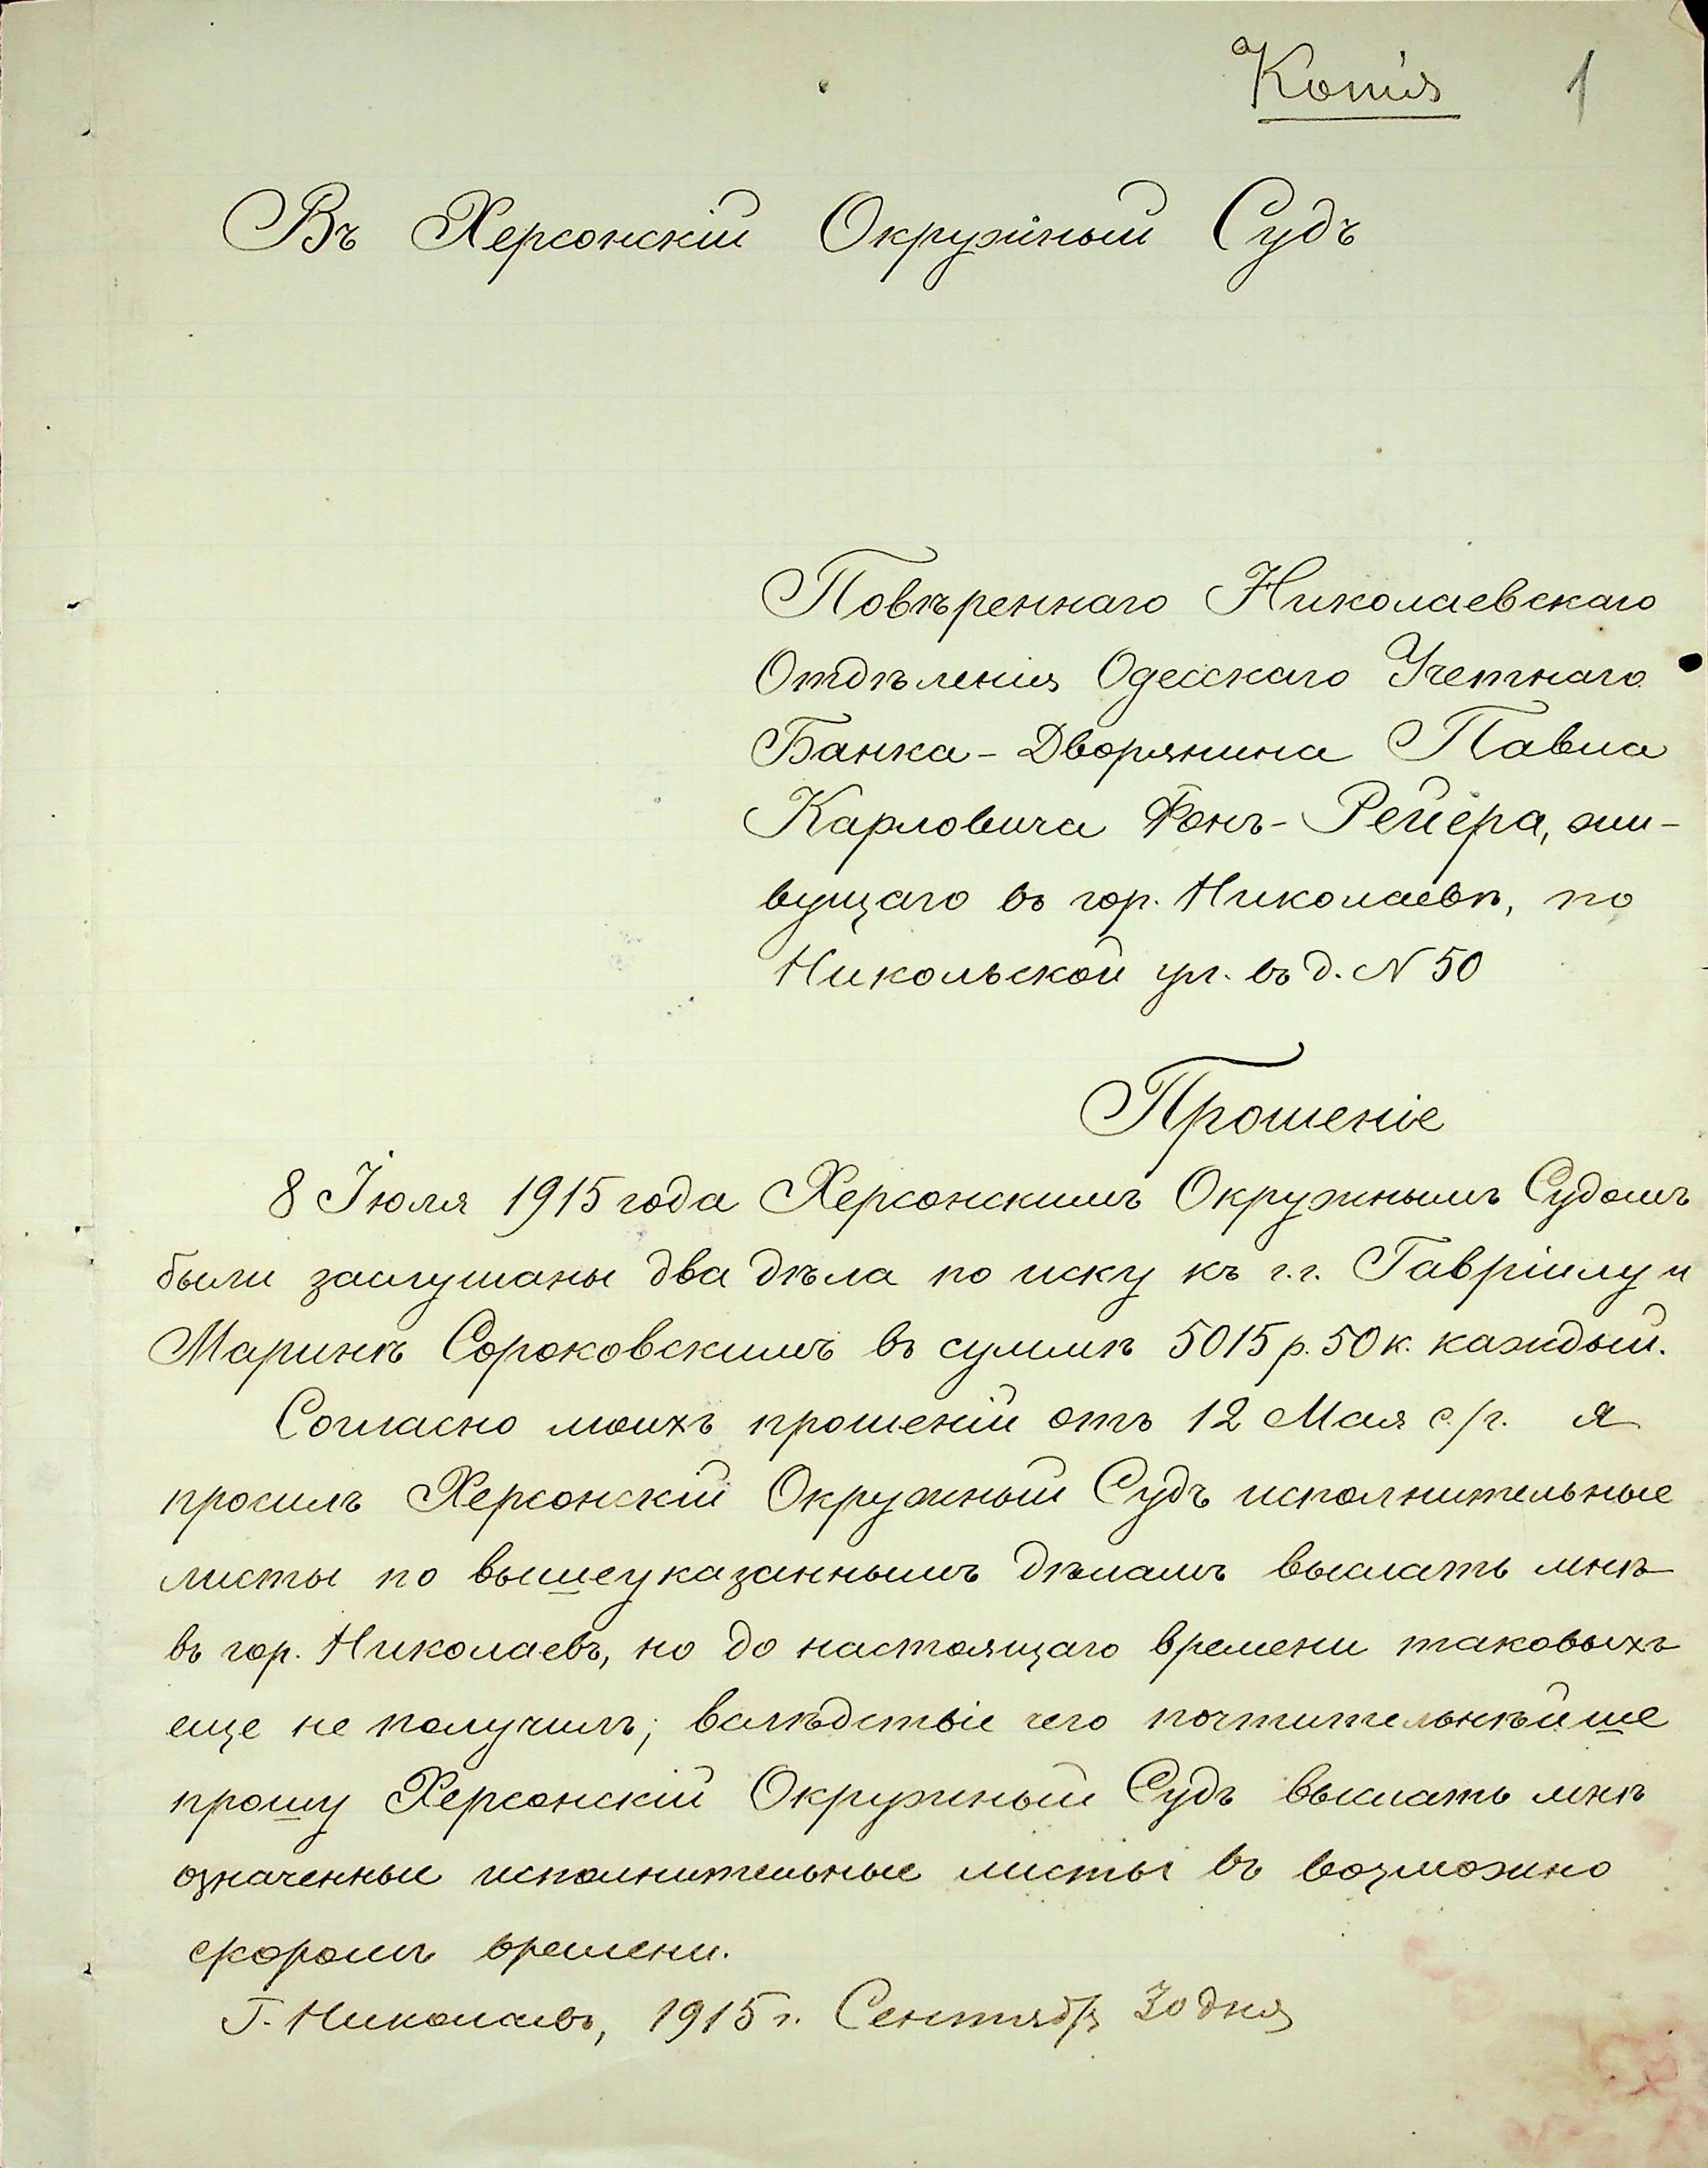 Копія 1
Въ Херсонскій Окружный Судъ
Повѣреннаго Николаевскаго
Отдѣленія Одесскаго Учетнаго
Банка - Дворянина Павла
Карловича Фонъ-Рейера, жи-
вущаго въ гор. Николаевѣ, по
Никольской ул. въ д. N 50
Прошеніе
8 Іюля 1915 года Херсонскимъ Окружнымъ Судомъ
были заслушаны два дѣла по иску къ г.г. Гавріилу и
Маринѣ Сороковскимъ въ суммѣ 5015 р. 50 к. каждый.
Согласно моихъ прошеній отъ 12 Мая с/г. я
просилъ Херсонскій Окружный Судъ исполнительные
листы по вышеуказаннымъ дѣламъ выслать мнѣ
въ гор. Николаевъ, но до настоящаго времени таковыхъ
еще не получилъ; вслѣдствіе чего почтительнѣйше
прошу Херсонскій Окружный Судъ выслать мнѣ
означенные исполнительные листы въ возможно
скоромъ времени.
Г. Николаевъ, 1915 г. Сентября 30 дня